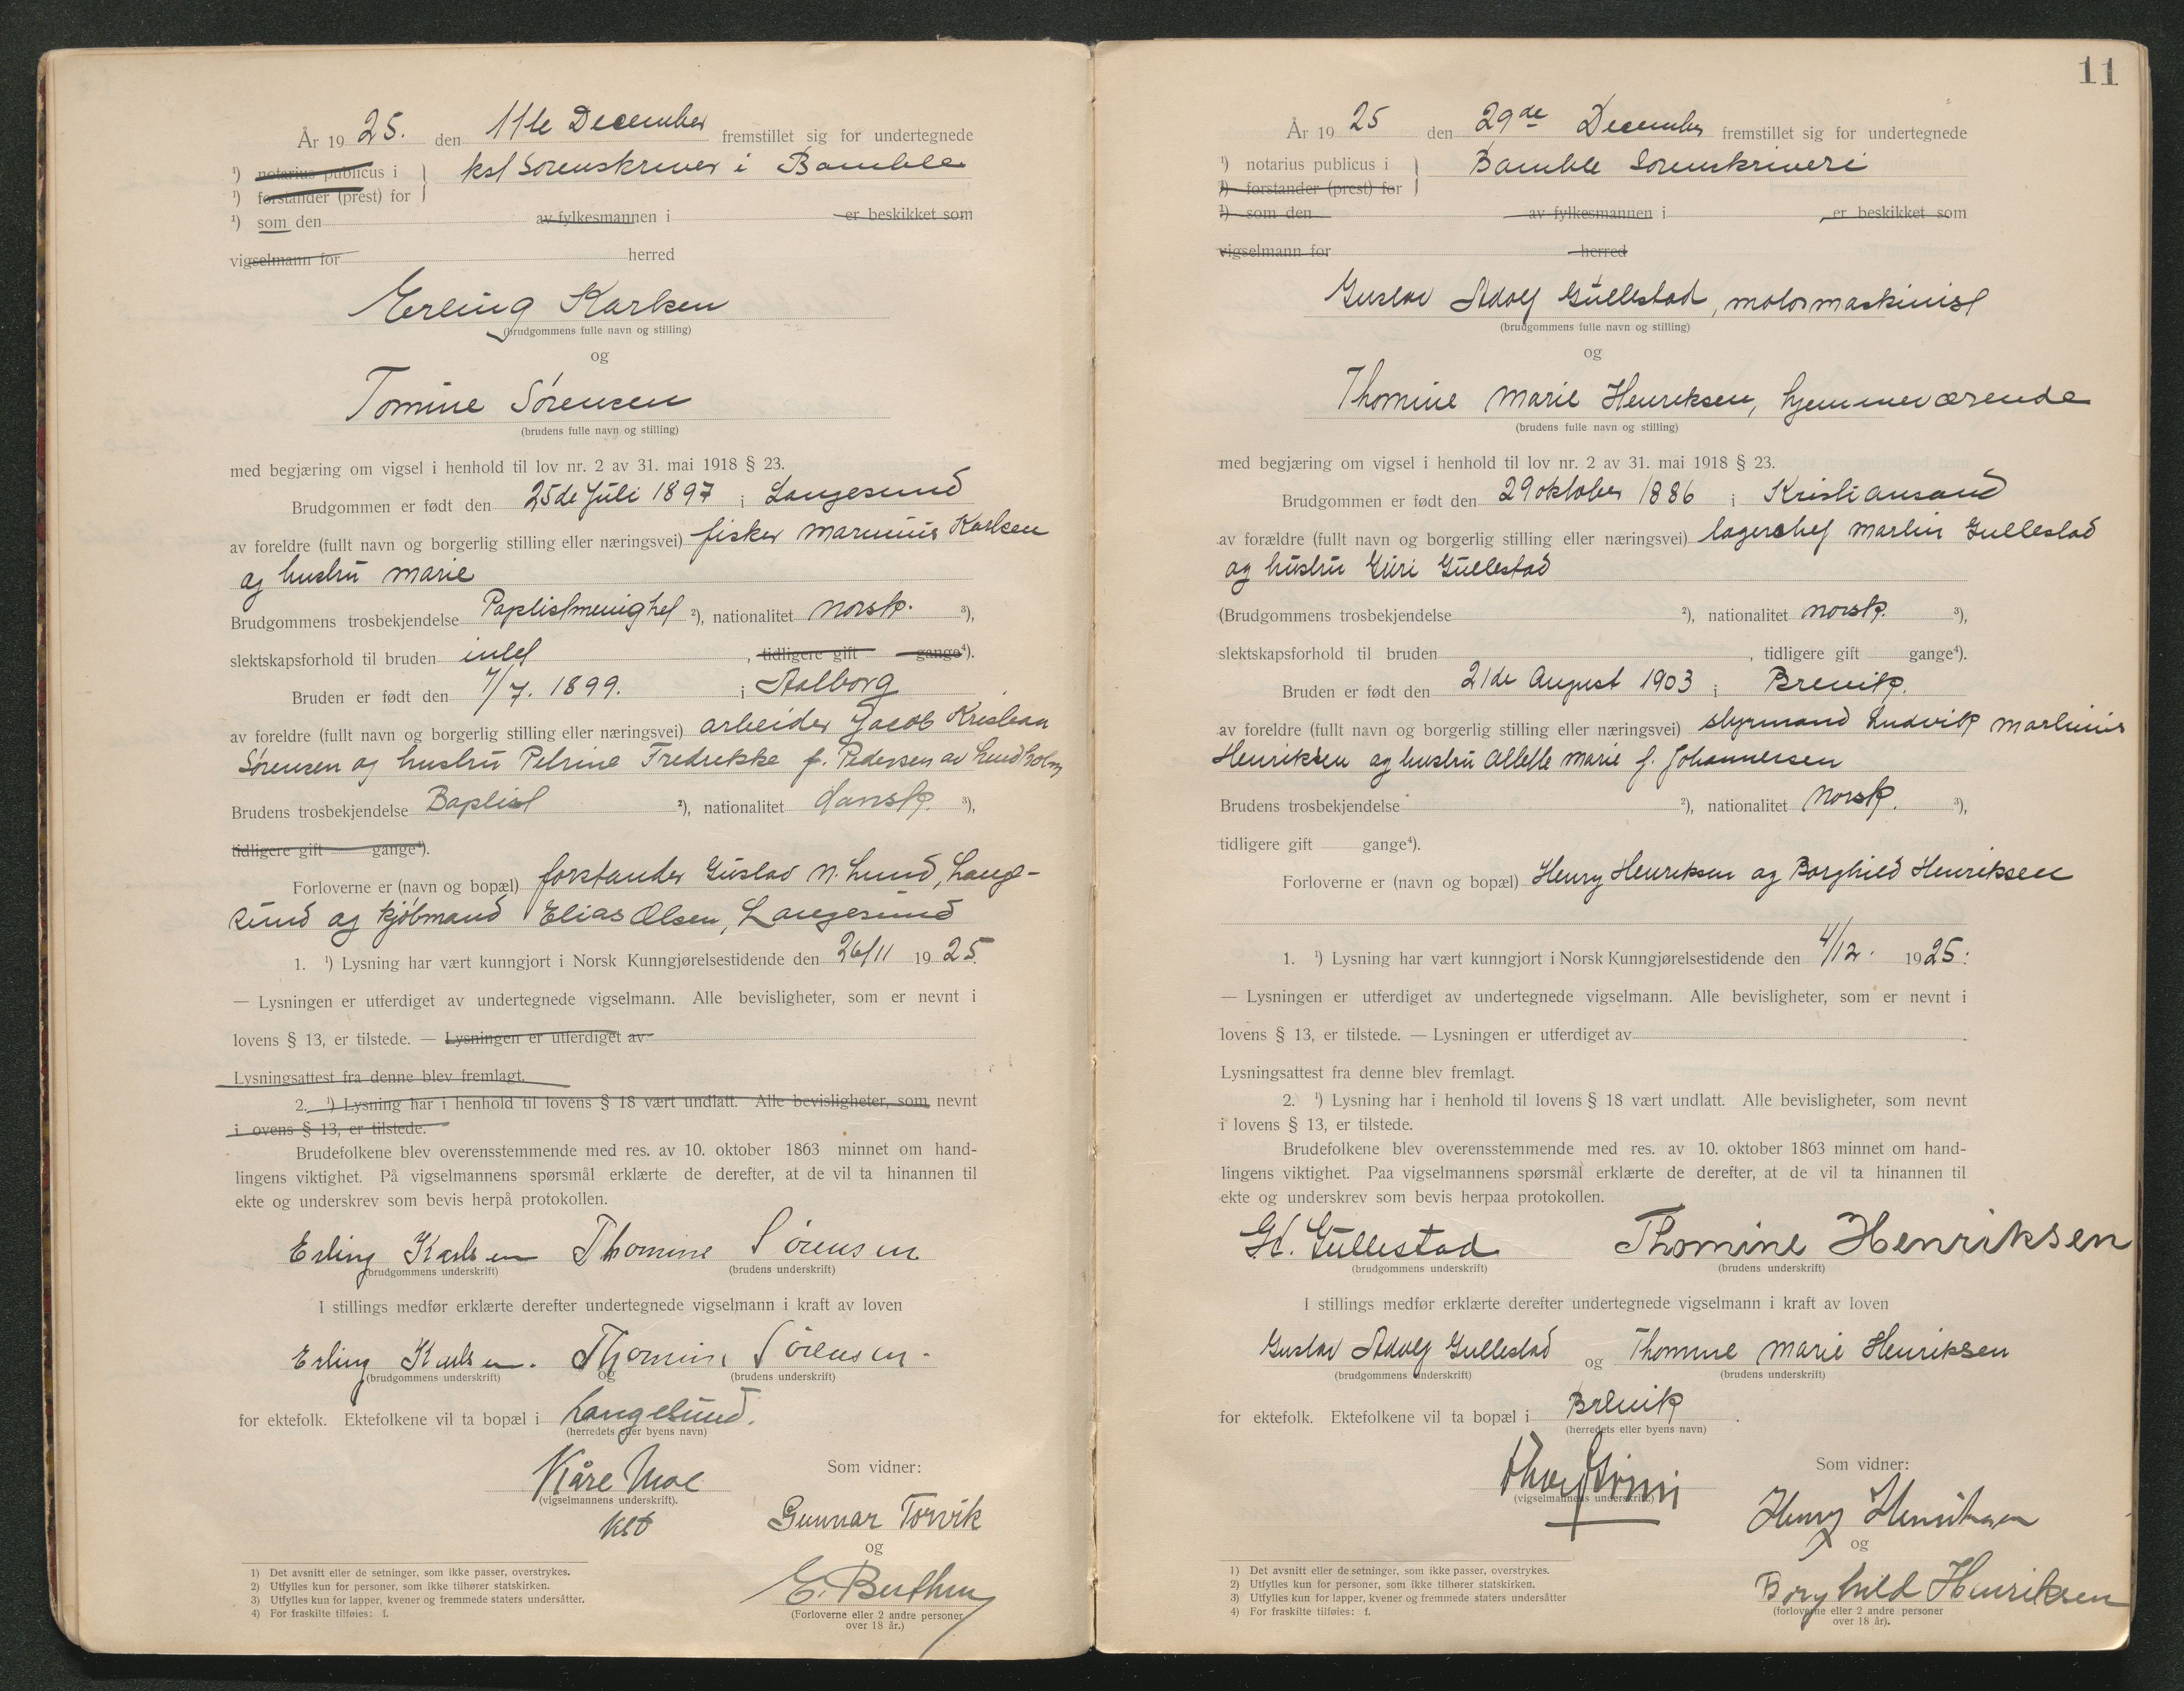 År 1925. den 11te December fremstillet sig for undertegnede
¹) notarius publicus i } kst Sorenskriver i Bamble
¹) forstander (prest) for
¹) som den av fylkesmannen i er beskikket som
vigselmann for herred
Erling Karlsen
(brudgommens fulle navn og stilling)
og
Tomine Sörensen
(brudens fulle navn og stilling)
med begjæring om vigsel i henhold til lov nr. 2 av 31. mai 1918 § 23.
Brudgommen er født den 25de Juli 1897 i Langesund
av foreldre (fullt navn og borgerlig stilling eller næringsvei) fisker Marinius Karlsen
og hustru Marie
Brudgommens trosbekjendelse Paptistmenighet ²), nationalitet norsk. ³),
slektskapsforhold til bruden intet , tidligere gift gange⁴).
Bruden er født den 7/7. 1899. i Aalborg
av foreldre (fullt navn og borgerlig stilling eller næringsvei) arbeider Jacob Kristian
Sörensen og hustru Petrine Fredrikke f. Pedersen av Lundholm
Brudens trosbekjendelse Baptist ²), nationalitet dansk. ³),
tidligere gift gange⁴).
Forloverne er (navn og bopæl) forstander Gustav N. Lund, Lange-
sund og kjöbmand Elias Olsen, Langesund
1. ¹) Lysning har vært kunngjort i Norsk Kunngjørelsestidende den 26/11 1925.
— Lysningen er utferdiget av undertegnede vigselmann. Alle bevisligheter, som er nevnt i
lovens § 13, er tilstede. — Lysningen er utferdiget av
Lysningsattest fra denne blev fremlagt.
2. ¹) Lysning har i henhold til lovens § 18 vært undlatt. Alle bevisligheter, som nevnt
i ovens § 13, er tilstede.
Brudefolkene blev overensstemmende med res. av 10. oktober 1863 minnet om hand-
lingens viktighet. På vigselmannens spørsmål erklærte de derefter, at de vil ta hinannen til
ekte og underskrev som bevis herpå protokollen.
Erling Karlsen Thomine Sörensen
(brudgommens underskrift) (brudens underskrift)
I stillings medfør erklærte derefter undertegnede vigselmann i kraft av loven
Erling Karlsen. og Thomine Sörensen.
(brudgommens underskrift) (brudens underskrift)
for ektefolk. Ektefolkene vil ta bopæl i Langesund.
(herredets eller byens navn)
Kåre Moe Som vidner:
(vigselmannens underskrift).
kst Gunnar Torvik
og
E. Berthen
(Forloverne eller 2 andre personer
over 18 år.)
1) Det avsnitt eller de setninger, som ikke passer, overstrykes.
2) Utfylles kun for personer, som ikke tilhører statskirken.
3) Utfylles kun for lapper, kvener og fremmede staters undersåtter.
4) For fraskilte tilføies: f.
11
År 1925 den 29de December fremstillet sig for undertegnede
¹) notarius publicus i } Bamble Sorenskriveri
¹) forstander (prest) for
¹) som den av fylkesmannen i er beskikket som
vigselmann for herred
Gustav Adolf Gullestad, motormaskinist
(brudgommens fulle navn og stilling)
og
Thomine Marie Henriksen, hjemmeværende
(brudens fulle navn og stilling)
med begjæring om vigsel i henhold til lov nr. 2 av 31. mai 1918 § 23.
Brudgommen er født den 29 oktober 1886 i Kristiansand
av forældre (fullt navn og borgerlig stilling eller næringsvei) lagerchef Martin Gullestad
og hustru Guri Gullestad
(Brudgommens trosbekjendelse ²), nationalitet norsk. ³),
slektskapsforhold til bruden , tidligere gift gange⁴).
Bruden er født den 21de August 1903 i Brevik.
av foreldre (fullt navn og borgerlig stilling eller næringsvei) styrmand Ludvik Martinius
Henriksen og hustru Allette Marie f. Johannersen
Brudens trosbekjendelse ²), nationalitet Norsk. ³),
tidligere gift gange⁴).
Forloverne er (navn og bopæl) Henry Henriksen og Borghild Henriksen
1. ¹) Lysning har vært kunngjort i Norsk Kunngjørelsestidende den 4/12. 1925.
— Lysningen er utferdiget av undertegnede vigselmann. Alle bevisligheter, som er nevnt i
lovens § 13, er tilstede. — Lysningen er utferdiget av
Lysningsattest fra denne blev fremlagt.
2. ¹) Lysning har i henhold til lovens § 18 vært undlatt. Alle bevisligheter, som nevnt
i lovens § 13, er tilstede.
Brudefolkene blev overensstemmende med res. av 10. oktober 1863 minnet om hand-
lingens viktighet. Paa vigselmannens spørsmål erklærte de derefter, at de vil ta hinannen til
ekte og underskrev som bevis herpaa protokollen.
Gullestad Thomine Henriksen
(brudgommens underskrift) (brudens underskrift)
I stillings medfør erklærte derefter undertegnede vigselmann i kraft av loven
Gustav Adolf Gullestad og Thomine Marie Henriksen
(brudgommens underskrift) (brudens underskrift)
for ektefolk. Ektefolkene vil ta bopæl i Brevik.
(herredets eller byens navn)
Som vidner:
(vigselmannens underskrift.)
Henry Henriksen
og
Borghild Henriksen
(forloverne eller 2 andre personer
over 18 år).
1) Det avsnitt eller de setninger, som ikke passer, overstrykes.
2) Utfylles kun for personer, som ikke tilhører statskirken.
3) Utfylles kun for lapper, kvener og fremmede staters undersåtter
4) For fraskilte tilføies: f.